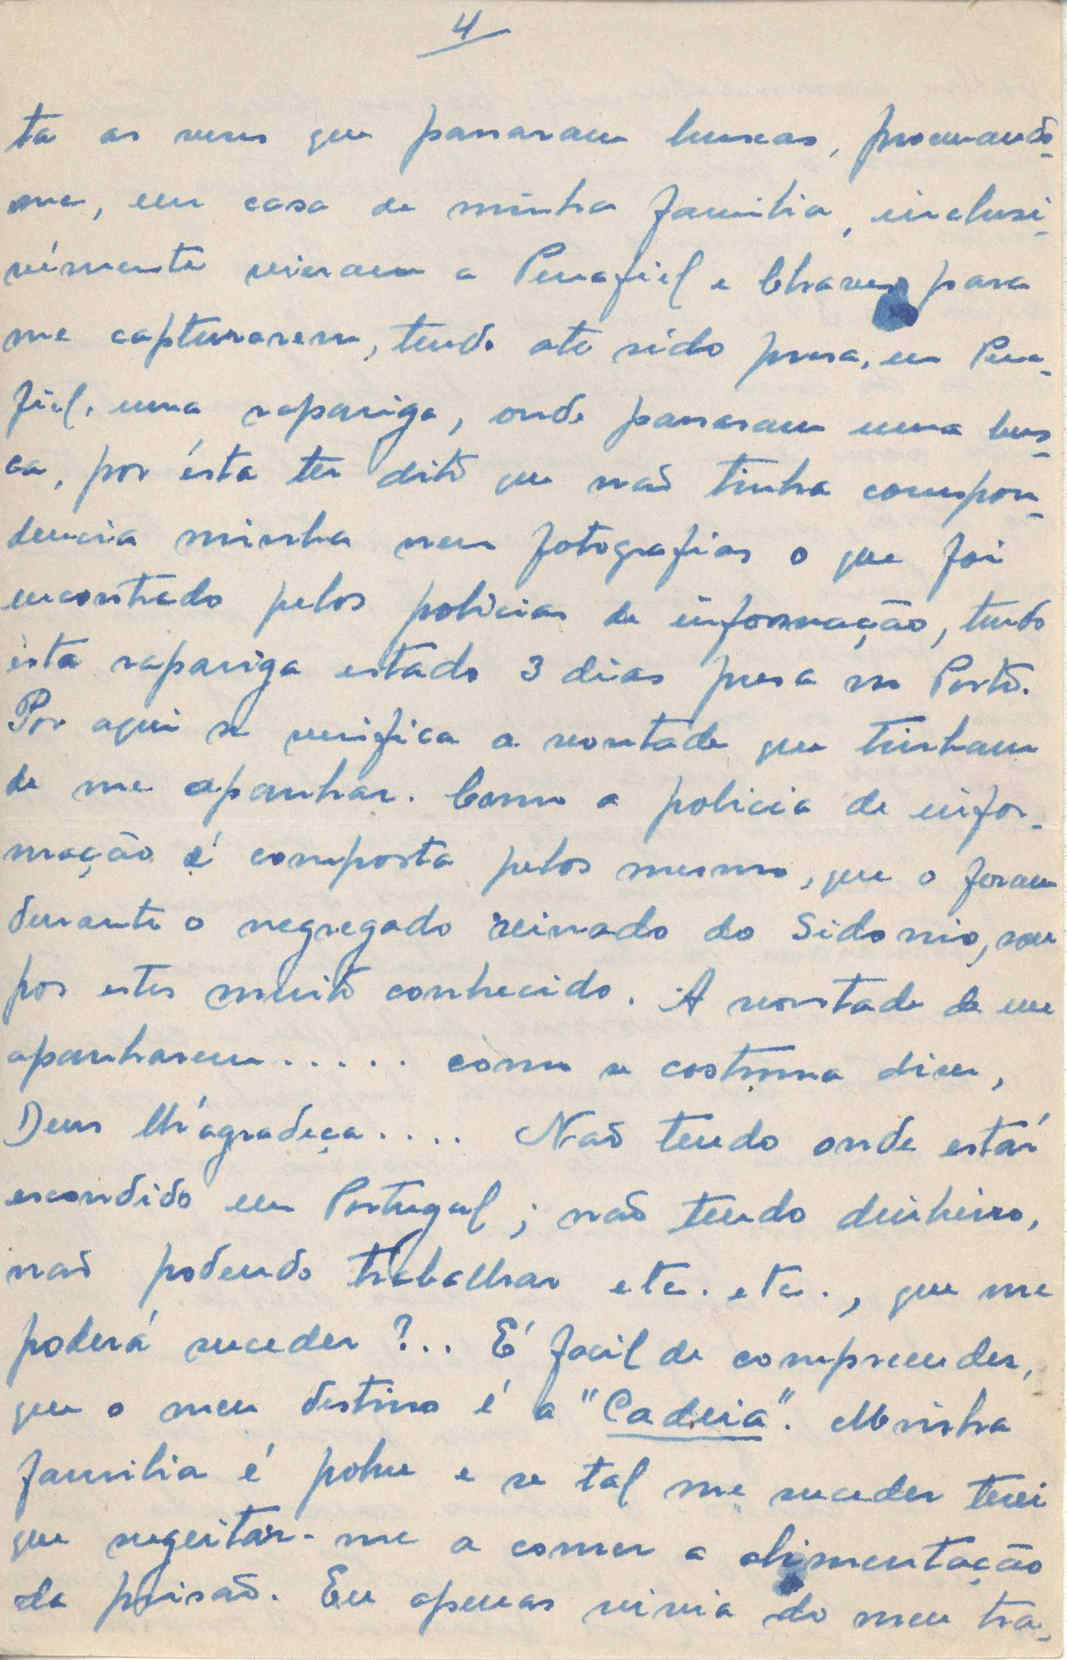 4
ta as vezes que passaram buscas, procurando-
me, em casa de minha familia, inclusi-
vémente vieram a Penafiel e Chaves para
me capturarem, tendo até sido presa, em Pena-
fiel, uma rapariga, onde passaram uma bus-
ca, por ésta ter dito que não tinha correspon-
dencia minha nem fotografias o que foi
encontrado pelos policias de informação, tendo
ésta rapariga estado 3 dias presa no Porto.
Por aqui se verifica a vontade que tinham
de me apanhar. Como a policia de infor-
mação é composta pelos mesmo, que o foram
durante o negregado reinado do Sidonio, sou
por estes muito conhecido. A vontade de me
apanharem..... como se costuma dizer,
Deus lh'agradeça.... Não tendo onde estár
escondido em Portugal; não tendo dinheiro,
não podendo trabalhar etc. etc., que me
poderá suceder?.. É facil de compreender,
que o meu destino é a "Cadeia". Minha
familia é pobre e se tal me suceder terei
que sugeitar-me a comer a alimentação
da prisão. Eu apenas vivia do meu tra-